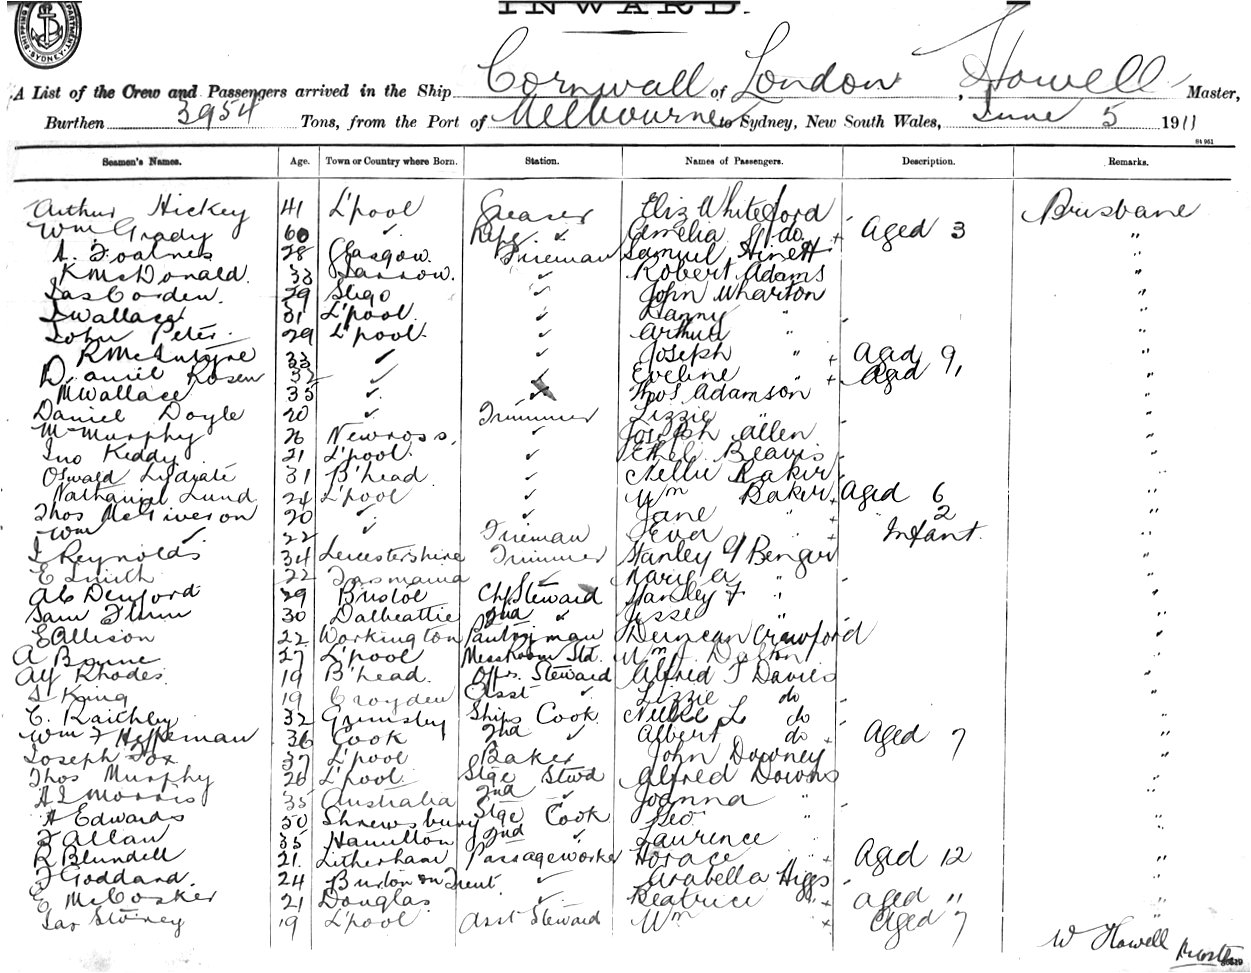 INWARD.
SHIPPING DEPARTMENT SYDNEY
A List of the Crew and Passengers arrived in the Ship Cornwall of London, Howell Master,
Burthen 3954 Tons, from the Port of Melbourne to Sydney, New South Wales, June 5 1911
St 961
Seamen's Names. Age. Town or Country where Born. Station. Names of Passengers. Description. Remarks.
Arthur Hickey 41 L'pool Greaser Eliz Whiteford Brisbane
Wm Grady 60 ✓ ✓ Amelia do + Aged 3 "
A. 28 Glasgow. Fireman Samuel "
K McDonald 33 Jarrow. ✓ Robert Adams "
Jas Corden. 29 Sligo ✓ John Wharton "
J Wallace 31 L'pool ✓ " "
John Peter 29 L'pool ✓ Arthur "
R McIntyre 33 ✓ ✓ Joseph " + Aged 9, "
Daniel Rosen 32 ✓ ✓ Eveline " + Aged "
M Wallace 35 ✓ Thos Adamson "
Daniel Doyle 20 ✓ Trimmer Lizzie " "
M Murphy 26 Newross. ✓ Joseph Allen "
Jno Keddy 21 L'pool ✓ Ethel Beavis "
Oswald Lydiate 31 B'head ✓ Nellie Baker "
Nathaniel Lund 24 L'pool ✓ Wm Baker + Aged 6 "
Thos McGiveron 20 ✓ ✓ Jane " + 2 "
Wm ✓ 22 ✓ Fireman " + Infant. "
J Reynolds 34 Leicestershire Trimmer Stanley "
E Smith 22 Tasmania ✓ Marie A " "
29 Bristol Ch Steward Stanley F " "
Sam Flinn 30 Dalbeattie 2nd " Jessie " "
E Allison 22 Workington Pantryman Duncan Crawford "
A 27 L'pool Messroom Std. Wm J. Dalton "
Alf Rhodes 19 B'head. Offrs. Steward Alfred J Davies "
S King 19 Croydon Asst ✓ Lizzie do "
C. Raithley 32 Grimsby Ships Cook Nellie L do "
Wm F Heffernan 36 Cook 2nd ✓ Albert do + Aged 7 "
Joseph Fox 37 L'pool Baker John Downey "
Thos Murphy 26 L'pool Stge Stwd Alfred Downs "
A L Morris 35 Australia 2nd ✓ Joanna " "
A Edwards 50 Shrewsbury Stge Cook Geo " "
F Allan 35 Hamilton 2nd ✓ Laurence "
R Blundell 21. Litherham Passageworker Horace " + Aged 12 "
F Goddard. 24 Burton on Trent ✓ Arabella Higgs "
E McCosker 21 Douglas ✓ Beatrice " + Aged 11 "
Jas 19 L'pool Asst Steward Wm " + Aged 7 "
W Howell Master